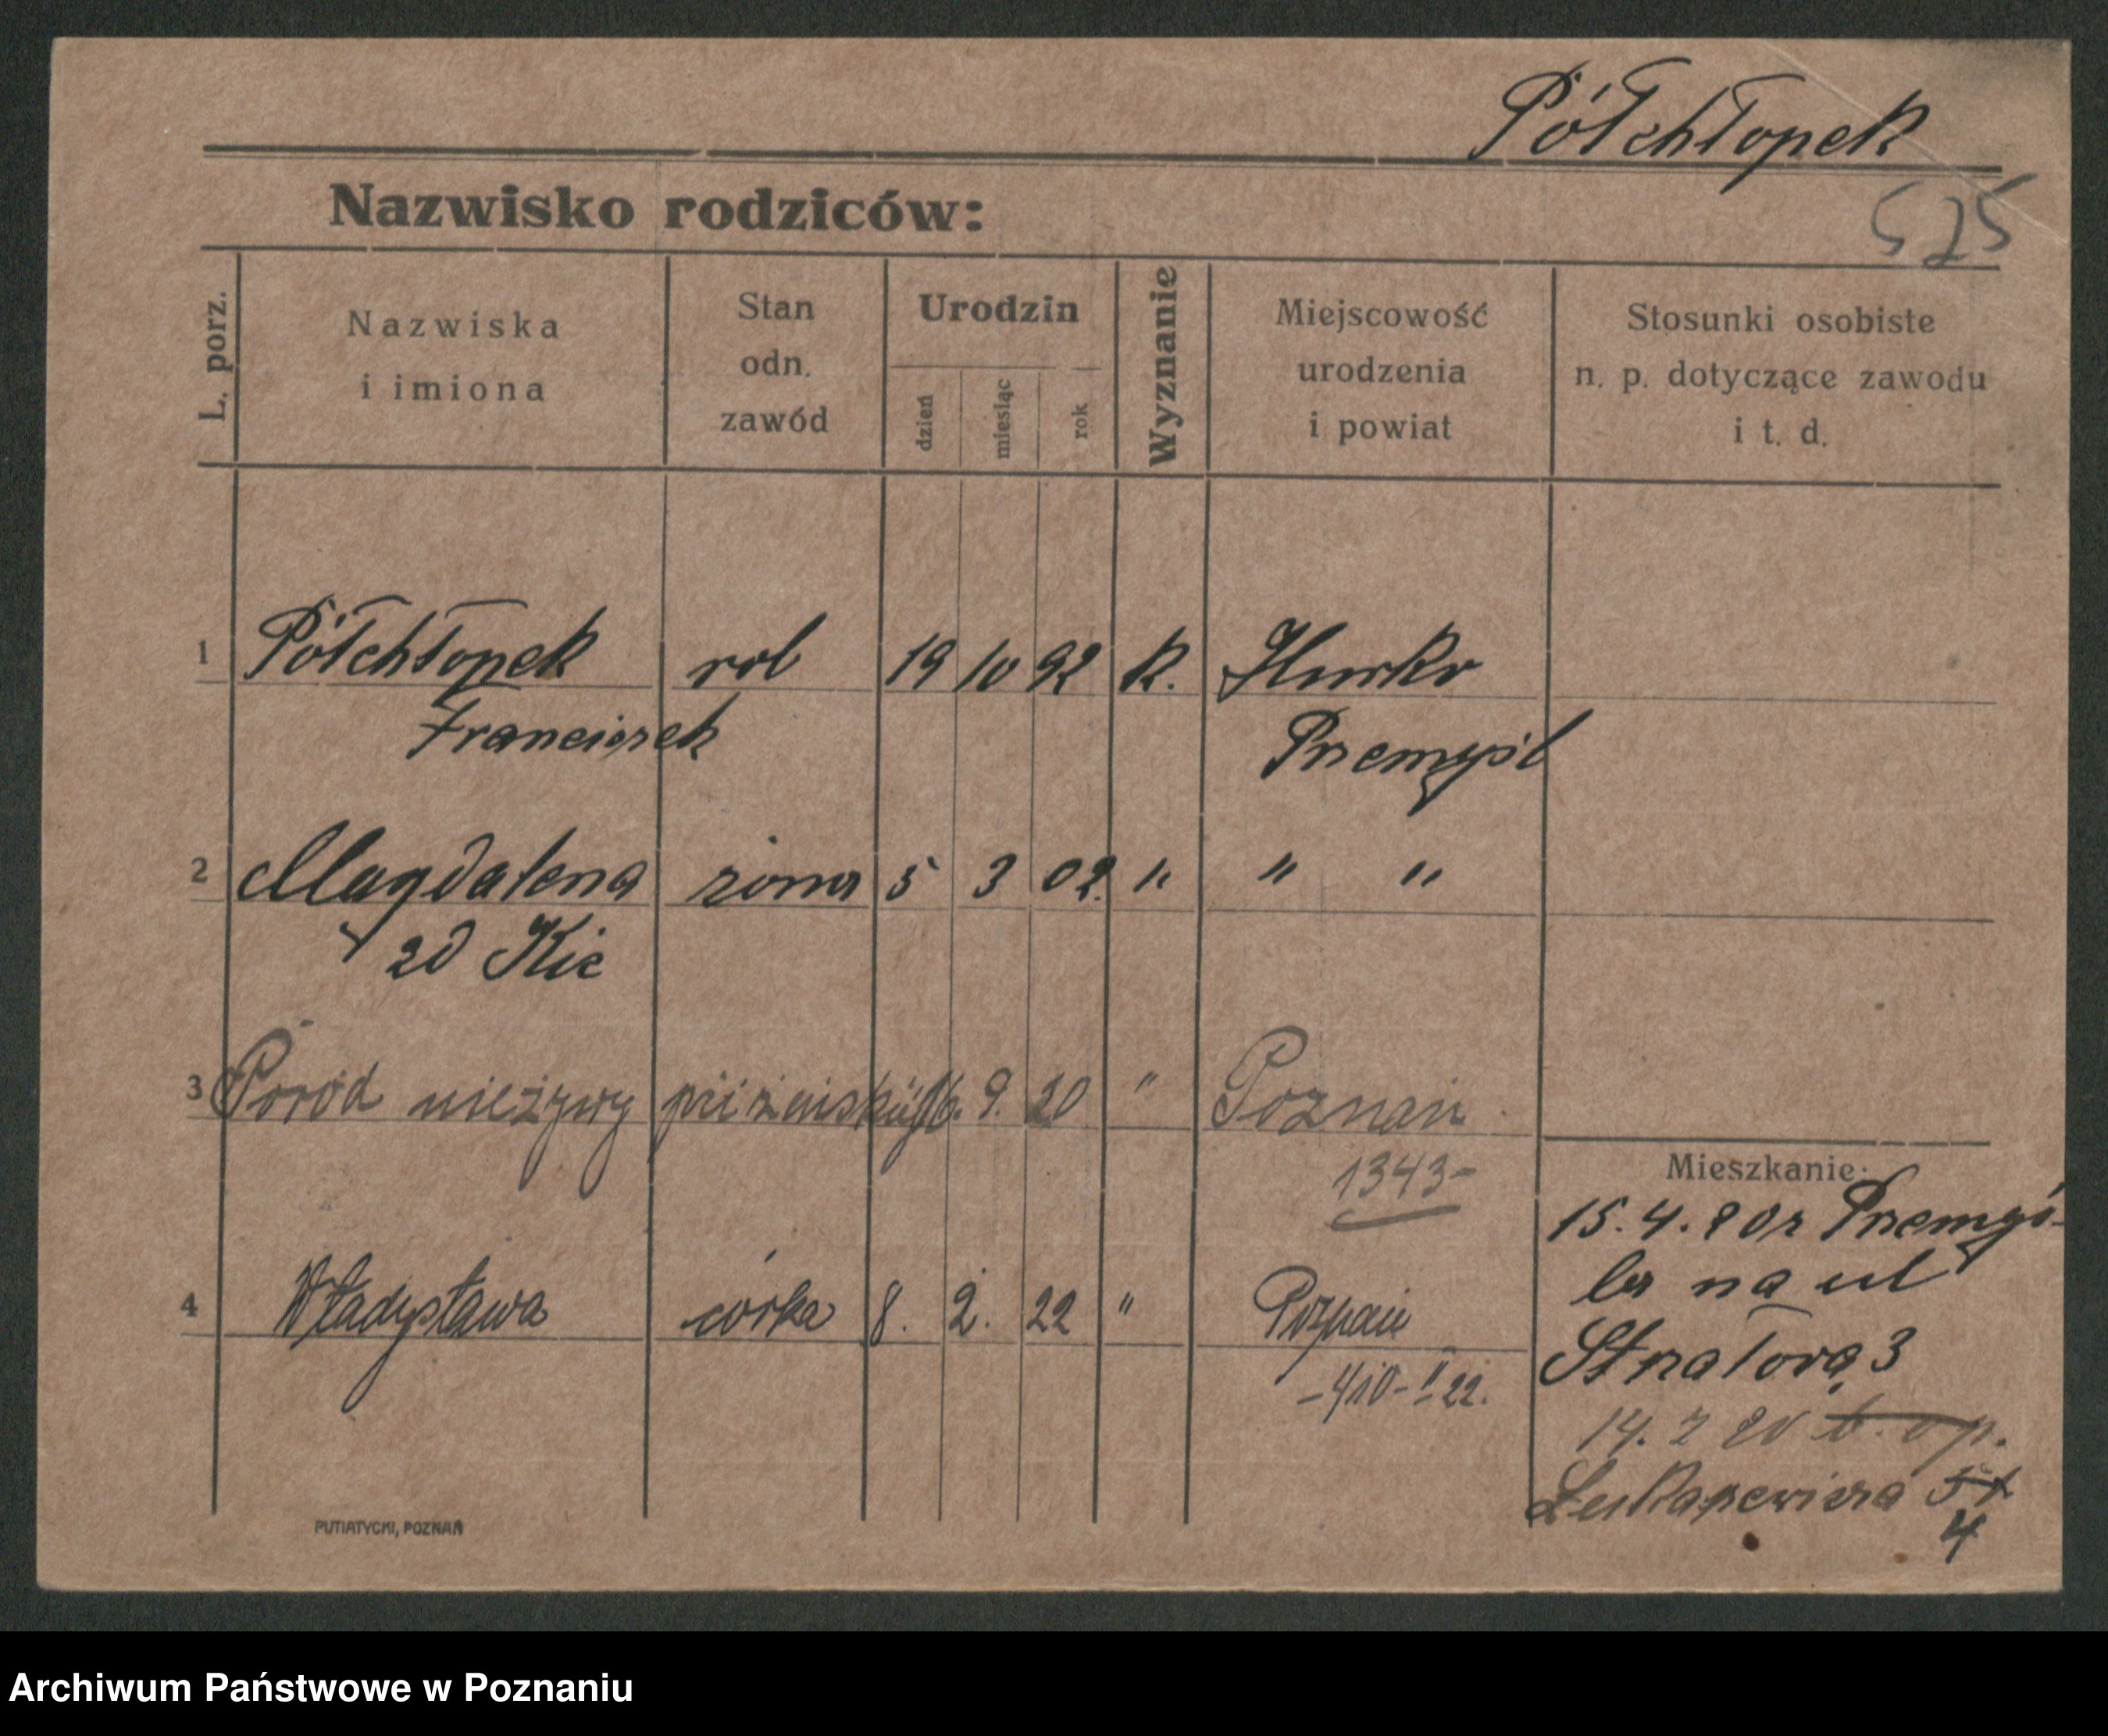 Półchłopek
525
Nazwisko rodziców:
L. porz.
Nazwiska
i imiona
Stan
odn.
zawód
Urodzin
dzień
miesiąc
rok
Wyznanie
Miejscowość
urodzenia
i powiat
Stosunki osobiste
n. p. dotyczące zawodu
i t. d.
1 Półchłopek rob 19 10 92 R. Hurko
Franciszek Przemyśl
2 Magdalena żona 5 3 02. " " "
zd Kic
3 Poród nieżywy 16. 9. 20 " Poznań
1343-
Mieszkanie:
15.4.20 z Przemyś-
la na ul
4 Władysława córka 8. 2. 22 " Poznań
Strzałową 3
-410-II 22.
14. 7 20
Łukaszewicza
4
PUTIATYCKI, POZNAŃ
Archiwum Państwowe w Poznaniu